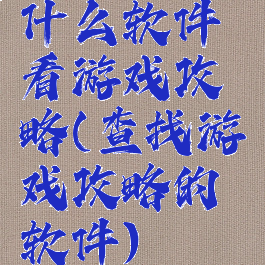 什么软件
看游戏攻
略(查找游
戏攻略的
软件)